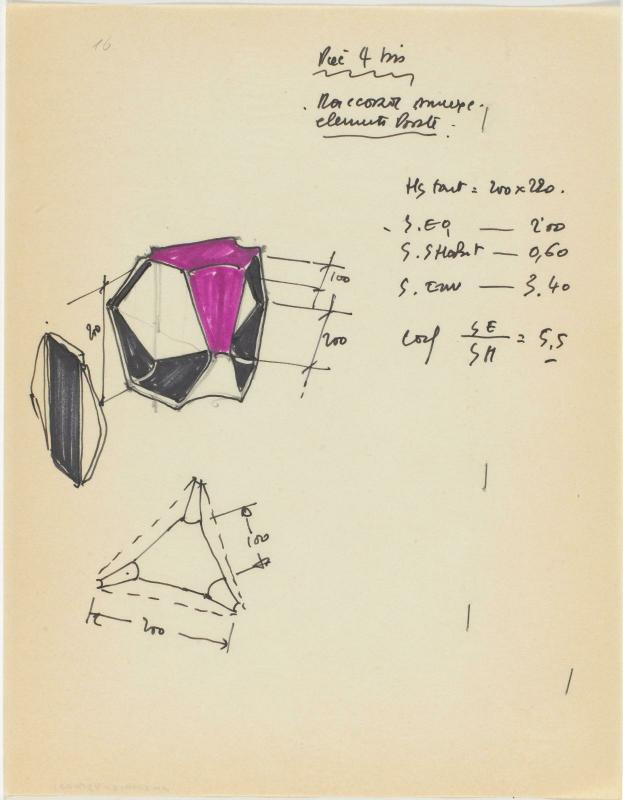 16
4 bis
Raccord
elements
Hs tout = 200 x 220.
S. EQ — 2'00
S. SHabit — 0,60
S. Env — 3.40
coef SE / SH = 5,5
100
200
20
100
200